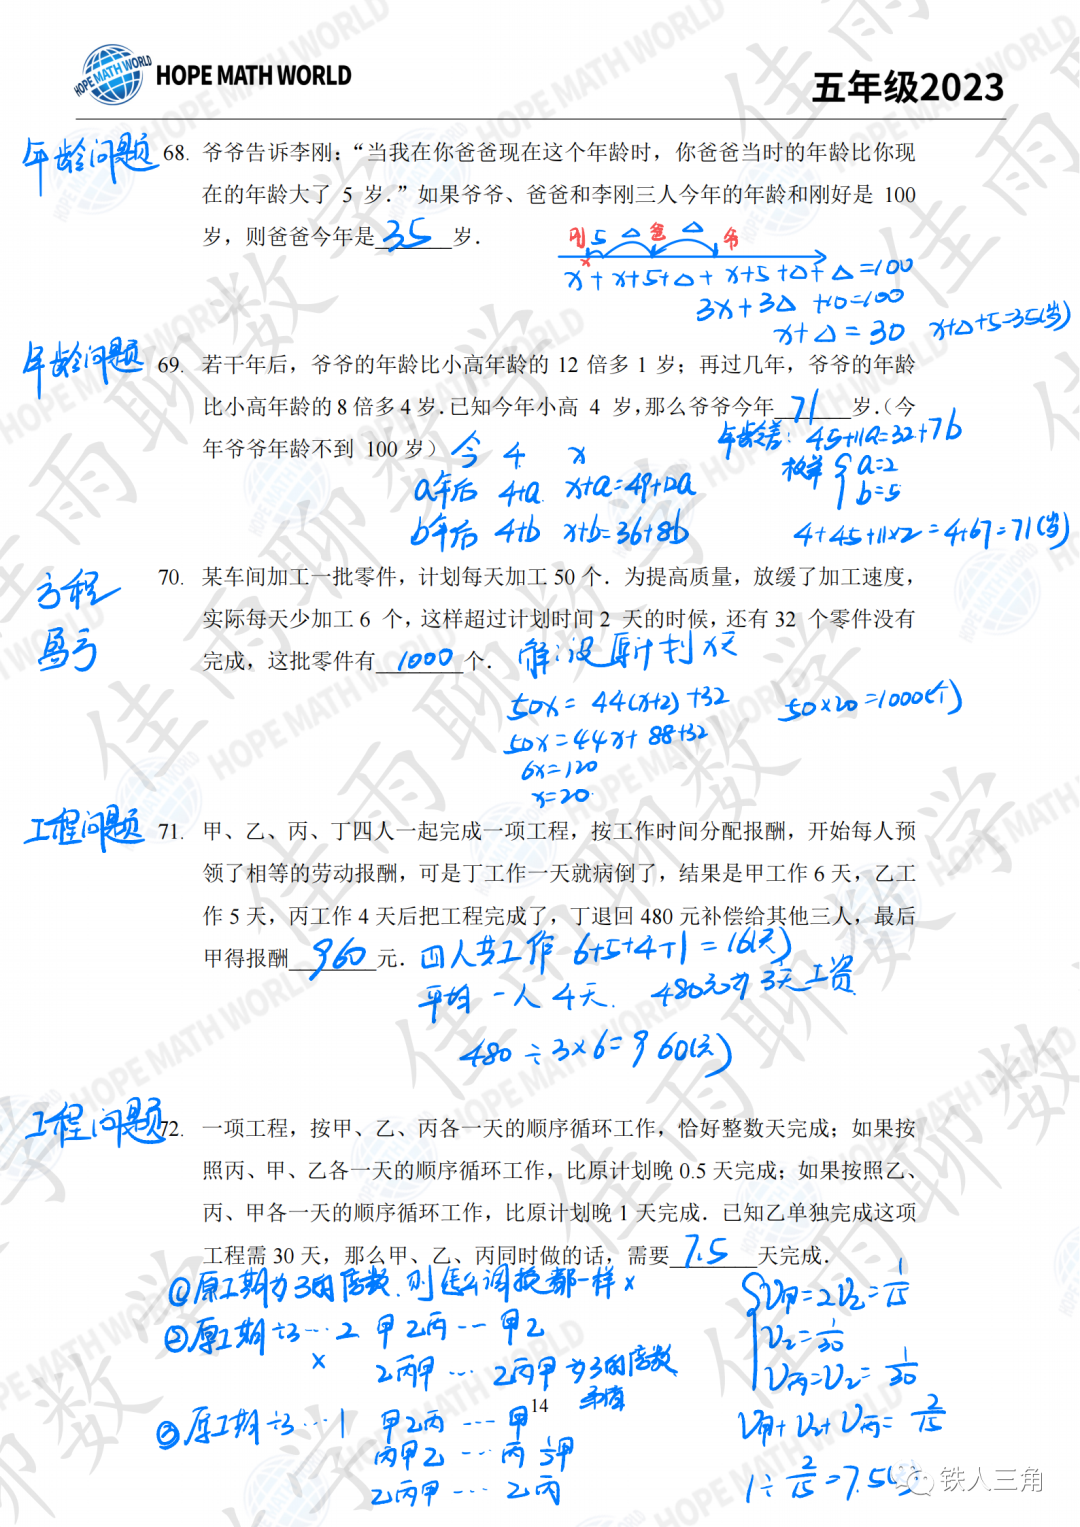 HOPE MATH WORLD
五年级2023
年龄问题
68. 爷爷告诉李刚：“当我在你爸爸现在这个年龄时，你爸爸当时的年龄比你现
在的年龄大了 5 岁．”如果爷爷、爸爸和李刚三人今年的年龄和刚好是 100
岁，则爸爸今年是 35 岁．
刚 5 △ 爸 △ 爷
x
x+x+5+△+x+5+△+△=100
3x+3△+10=100
x+△=30 x+△+5=35(岁)
年龄问题
69. 若干年后，爷爷的年龄比小高年龄的 12 倍多 1 岁；再过几年，爷爷的年龄
比小高年龄的 8 倍多 4 岁．已知今年小高 4 岁，那么爷爷今年 71 岁．（今
年爷爷年龄不到 100 岁）
今 4 x
a年后 4+a x+a=49+12a
b年后 4+b x+b=36+8b
年龄差：45+11a=32+7b
枚举 { a=2
b=5
4+45+11×2=4+67=71(岁)
方程
盈亏
70. 某车间加工一批零件，计划每天加工 50 个．为提高质量，放缓了加工速度，
实际每天少加工 6 个，这样超过计划时间 2 天的时候，还有 32 个零件没有
完成，这批零件有 1000 个．
解：设原计划x天
50x=44(x+2)+32
50x=44x+88+32
6x=120
x=20
50×20=1000(个)
工程问题
71. 甲、乙、丙、丁四人一起完成一项工程，按工作时间分配报酬，开始每人预
领了相等的劳动报酬，可是丁工作一天就病倒了，结果是甲工作 6 天，乙工
作 5 天，丙工作 4 天后把工程完成了，丁退回 480 元补偿给其他三人，最后
甲得报酬 960 元．
四人共工作 6+5+4+1=16(天)
平均一人4天． 480元为3天工资
480÷3×6=960(元)
工程问题
72. 一项工程，按甲、乙、丙各一天的顺序循环工作，恰好整数天完成；如果按
照丙、甲、乙各一天的顺序循环工作，比原计划晚 0.5 天完成；如果按照乙、
丙、甲各一天的顺序循环工作，比原计划晚 1 天完成．已知乙单独完成这项
工程需 30 天，那么甲、乙、丙同时做的话，需要 7.5 天完成．
①原工期为3的倍数，则怎么调换都一样 ×
②原工期÷3…2 甲乙丙…甲乙
× 乙丙甲…乙丙甲 为3的倍数
矛盾
③原工期÷3…1 甲乙丙…甲
丙甲乙…丙 ½甲
乙丙甲…乙丙
{ V甲=2V乙=1/15
V乙=1/30
V丙=V乙=1/30
V甲+V乙+V丙=2/15
1÷2/15=7.5(天)
14
铁人三角
佳雨聊数学